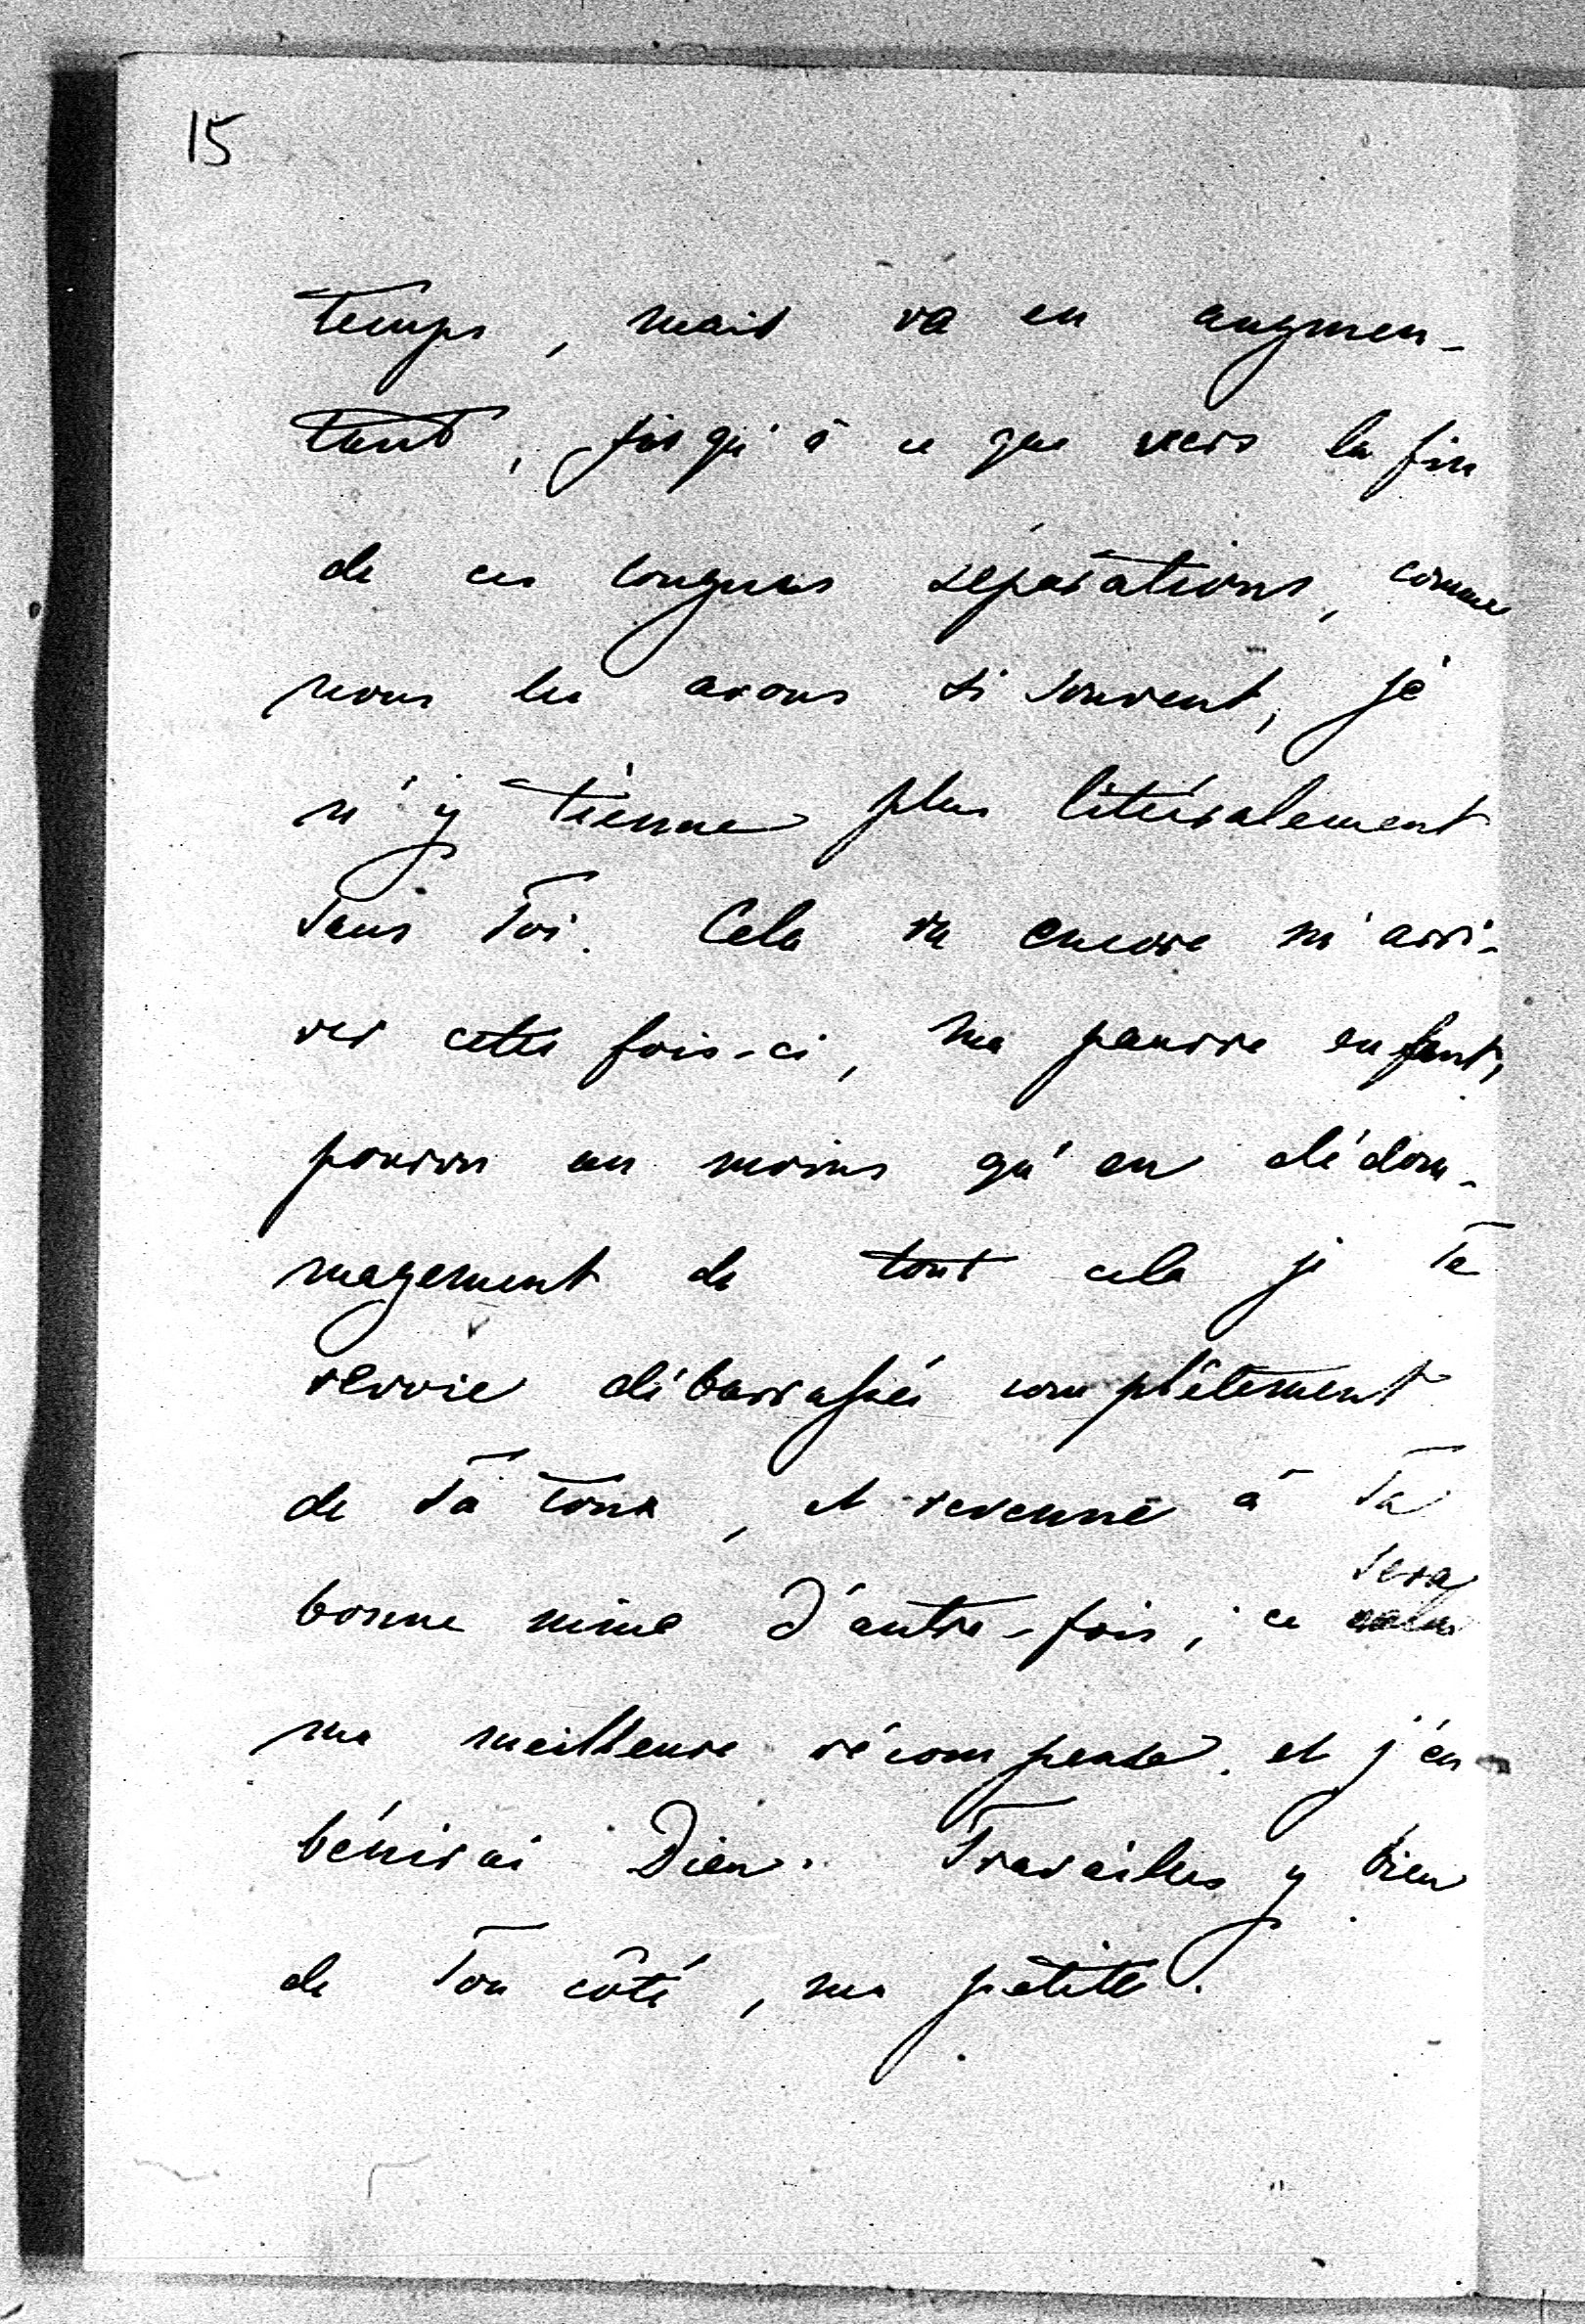 15
temps, mais va en augmen-
tant, jusqu'à ce que vers la fin
de ces longues séparations, comme
nous les avons si souvent, je
n'y tienne plus litéralement
sans Toi. Cela va encore m'arri-
ver cette fois-ci, ma pauvre enfant,
pourvu au moins qu'en dédom-
magement de tout cela je Te
revoie débarrassée complètement
de Ta toux, et revenue à Ta
sera
bonne mine d'autre-fois, ce
ma meilleure récompense. et j'en
bénirai Dieu. Travailles y bien
de Ton côté, ma petite.